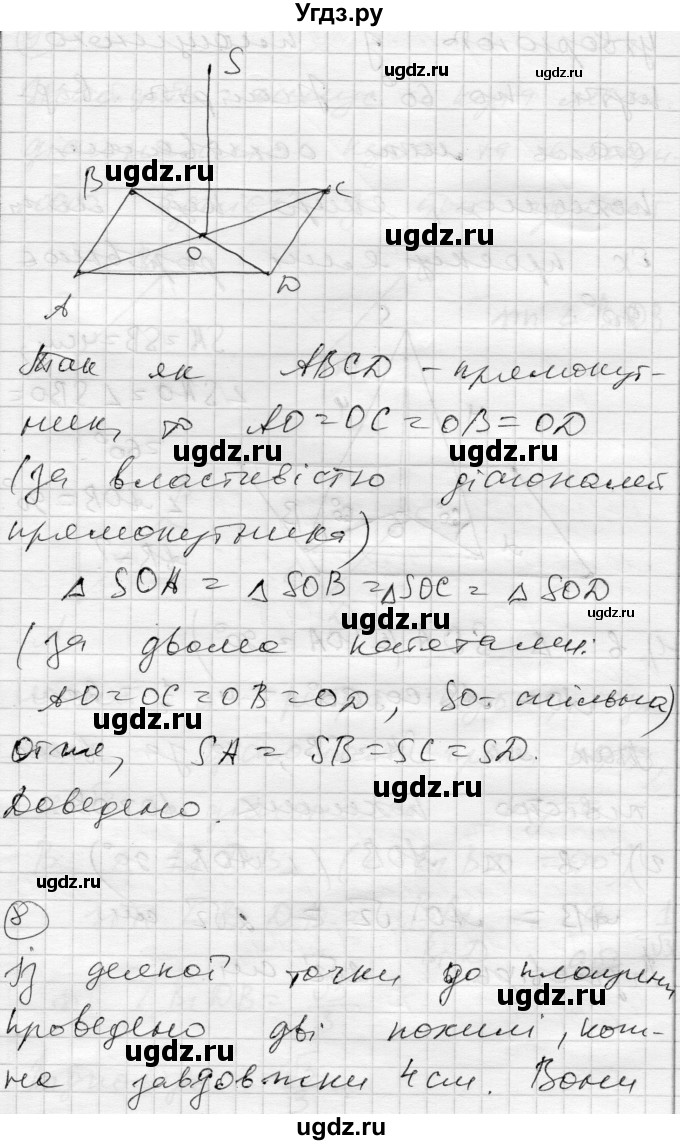 Угдз.ру
S
B
C
O
A
D
Так як ABCD – прямокут-
ник, то AO = OC = OB = OD
(за властивістю діагоналей
прямокутника)
△ SOA = △ SOB = △ SOC = △ SOD
(за двома катетами:
AO = OC = OB = OD, SO - спільна)
Отже, SA = SB = SC = SD.
Доведено.
8
Із деякої точки до площини
проведено дві похилі, кож-
на завдовжки 4 см. Вони
ugdz.ru
ugdz.ru
ugdz.ru
ugdz.ru
ugdz.ru
ugdz.ru
ugdz.ru
ugdz.ru
ugdz.ru
ugdz.ru
ugdz.ru
ugdz.ru
ugdz.ru